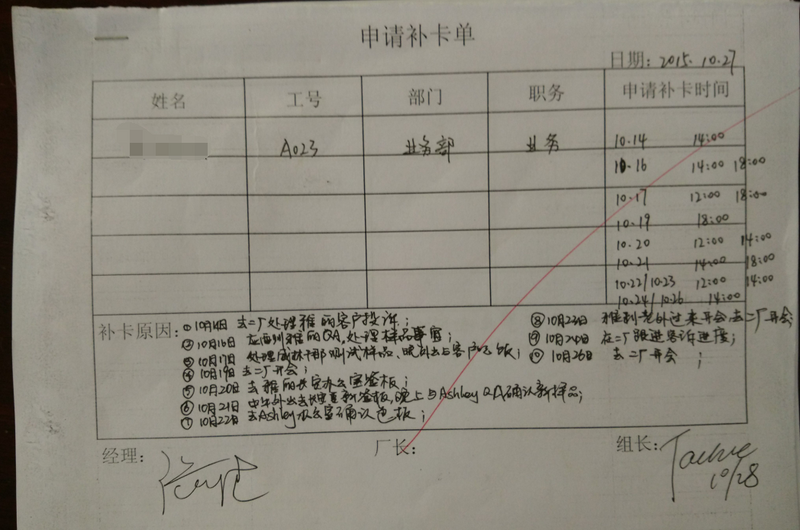 申请补卡单
日期: 2015.10.27
姓名 工号 部门 职务 申请补卡时间
A023 业务部 业务 10.14 14:00
10.16 14:00 18:00
10.17 12:00 18:00
10.19 18:00
10.20 12:00 14:00
10.21 14:00 18:00
10.22/10.23 12:00 14:00
10.24/10.26 14:00
补卡原因: ①10月14日 去二厂处理雅丽客户投诉;
②10月16日 雅丽QA,处理样品事宜;
③10月17日 处理 测试样品,晚 去与客户 饭;
④10月19日 去二厂开会;
⑤10月20日 去雅丽长安办公室签板;
⑥10月21日 中午外出去 签板,晚上与Ashley QA确认新样品;
⑦10月22日 去Ashley办公室确认色板;
⑧10月23日 雅丽老外过来开会去二厂开会
⑨10月24日 在二厂跟进 进度;
⑩10月26日 去二厂开会;
经理: 厂长: 组长:
10/28